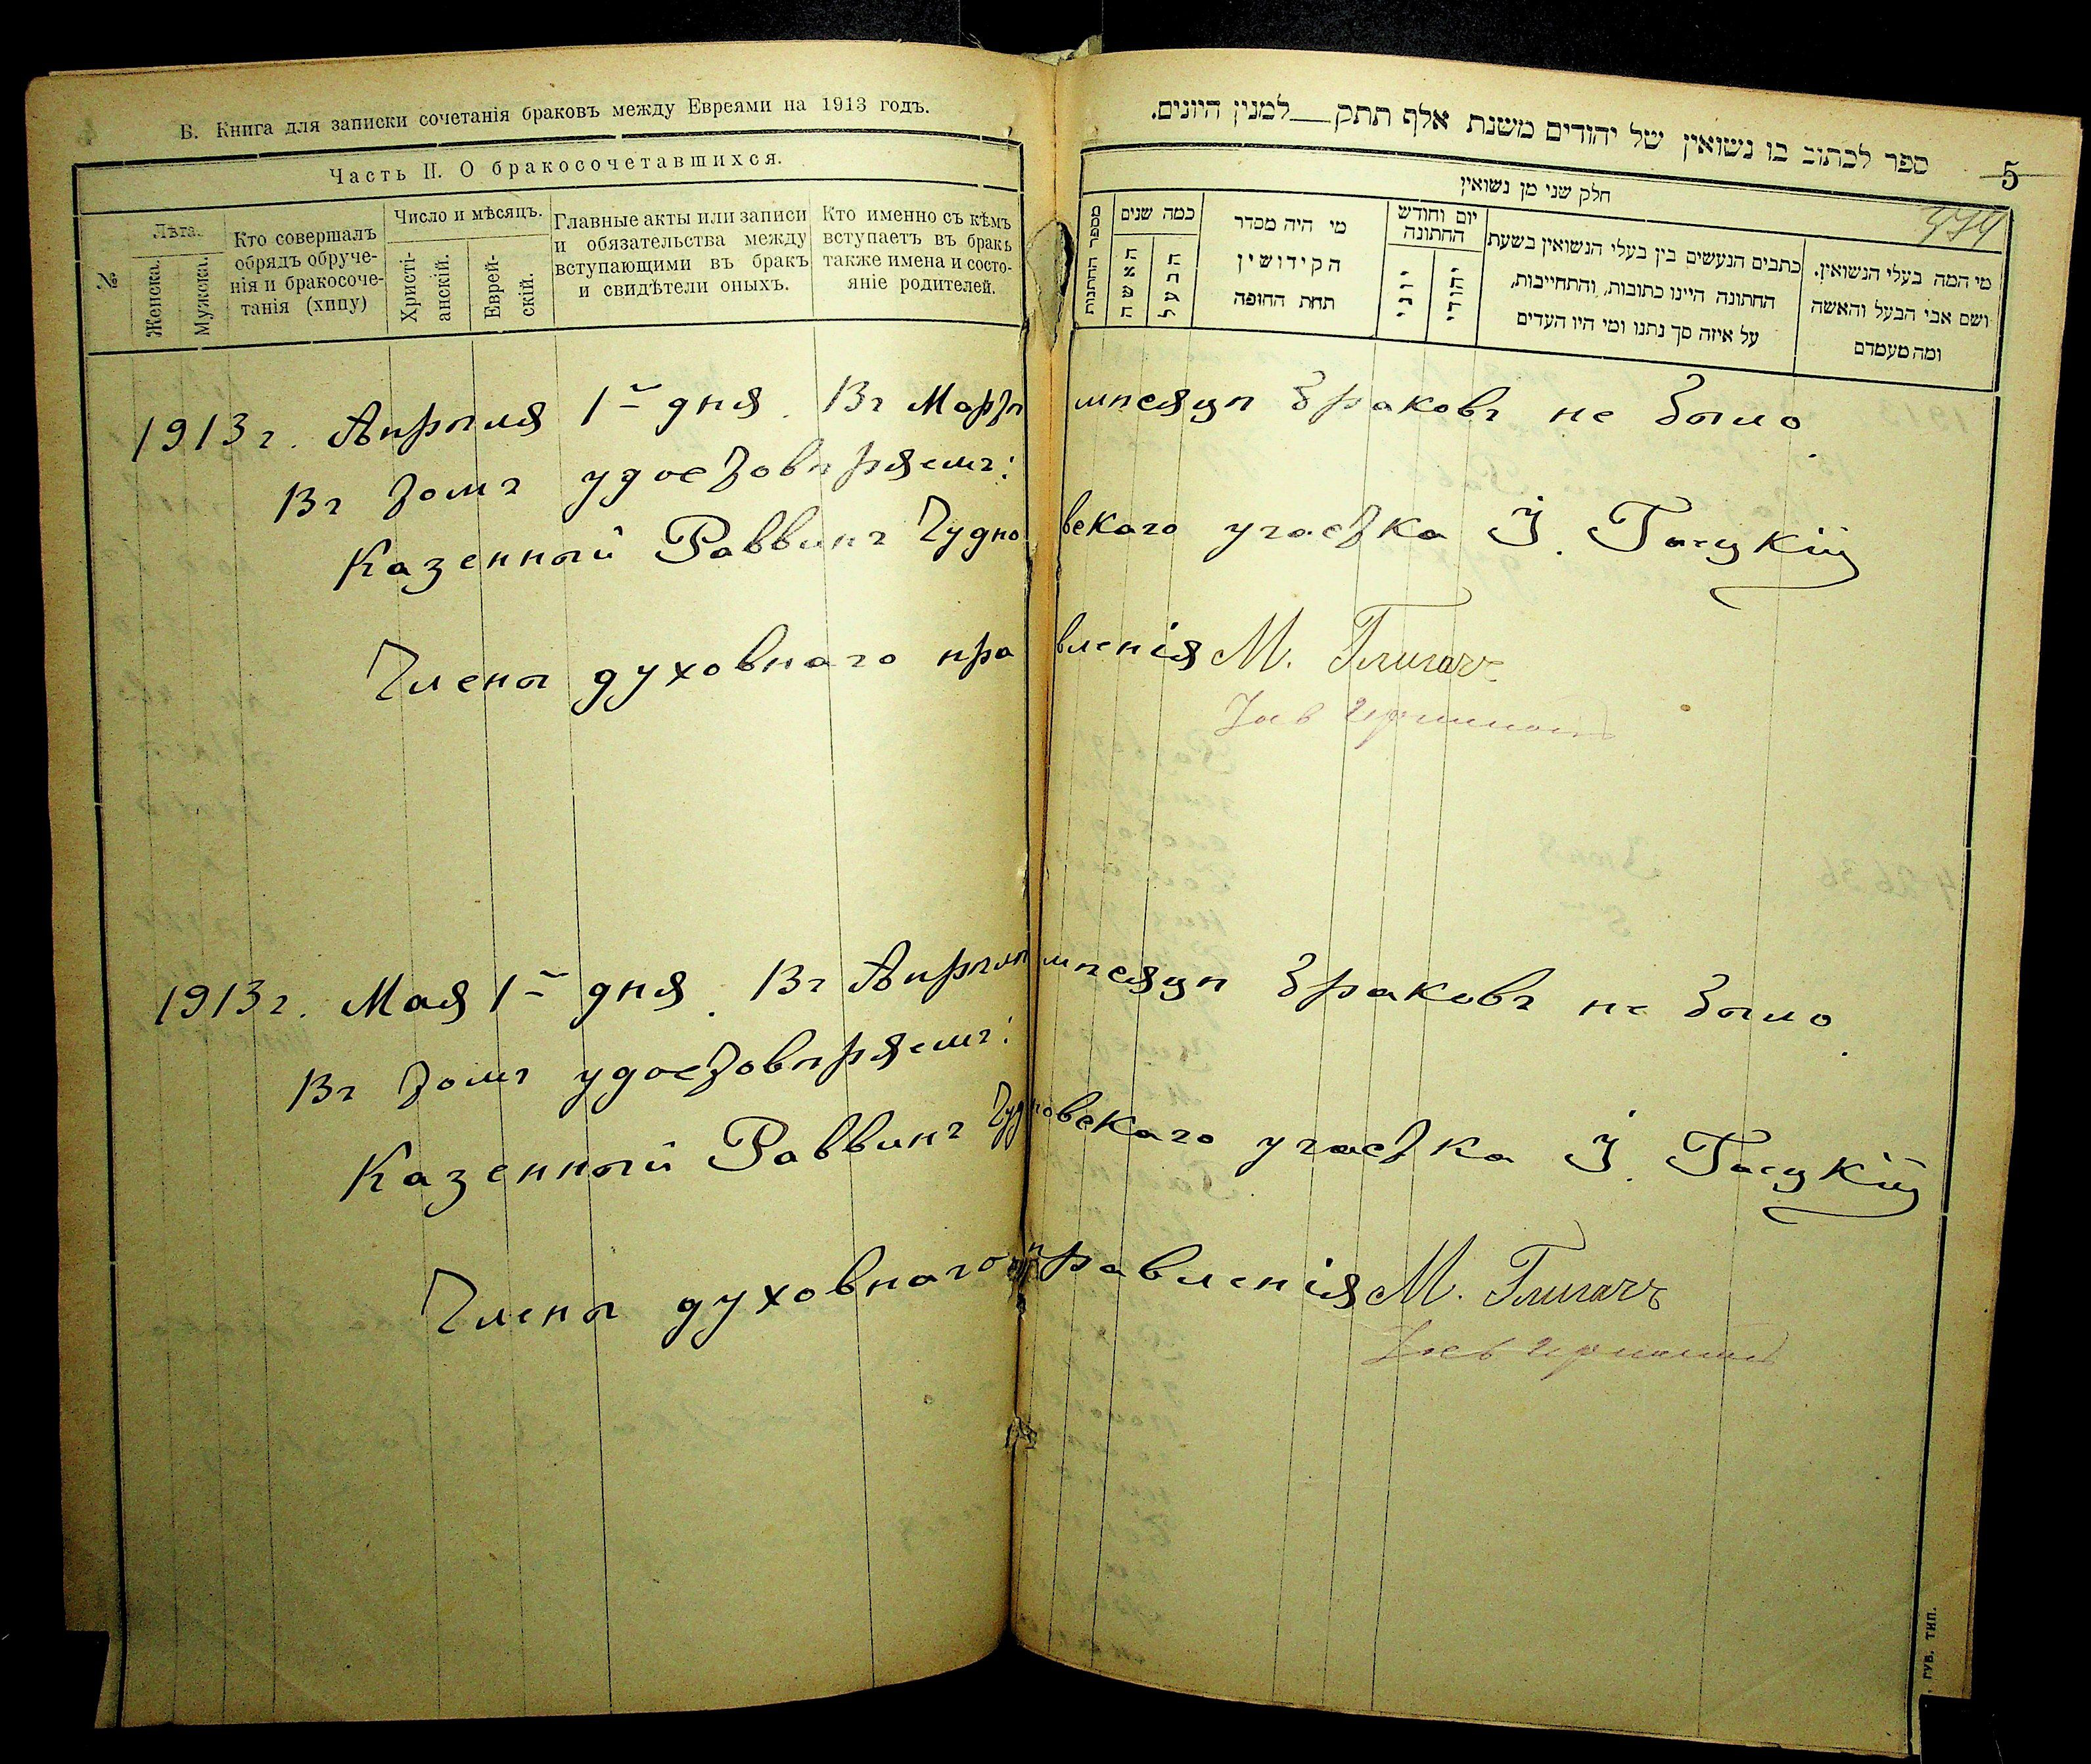 Б. Книга для записки сочетанія браковъ между Евреями на 1913 годъ.
Часть II. О бракосочетавшихся.
№
Лѣта.
Женска.
Мужска.
Кто совершалъ
обрядъ обруче-
нія и бракосоче-
танія (хипу)
Число и мѣсяцъ.
Христі-
анскій.
Еврей-
скій.
Главные акты или записи
и обязательства между
вступающими въ бракъ
и свидѣтели оныхъ.
Кто именно съ кѣмъ
вступаетъ въ бракъ
также имена и состо-
яніе родителей.
ספר לכתוב בו נשואין של יהודים משנת אלף תתק__למנין היונים.
5
חלק שני מן נשואין
474
מספר החתנות
כמה שנים
האשה
הבעל
מי היה מסדר
הקידושין
תחת החופה
יום וחודש
החתונה
יוני
יהודי
כתבים הנעשים בין בעלי הנשואין בשעת
החתונה היינו כתובות, והתחייבות,
על איזה סך נתנו ומי היו העדים
מי המה בעלי הנשואין.
ושם אבי הבעל והאשה
ומה מעמדם
1913 г. Апрѣля 1го дня. Въ Мартѣ мѣсяцѣ браковъ не было.
Въ томъ удостовѣряемъ:
Казенный Раввинъ Чудновскаго участка І. Гасцкій
Члены духовнаго правленія М. Глигачъ
1913 г. Мая 1го дня. Въ Апрѣлѣ мѣсяцѣ браковъ не было.
Въ томъ удостовѣряемъ:
Казенный Раввинъ Чудновскаго участка І. Гасцкій
Члены духовнаго правленія М. Глигачъ
ГУБ. ТИП.